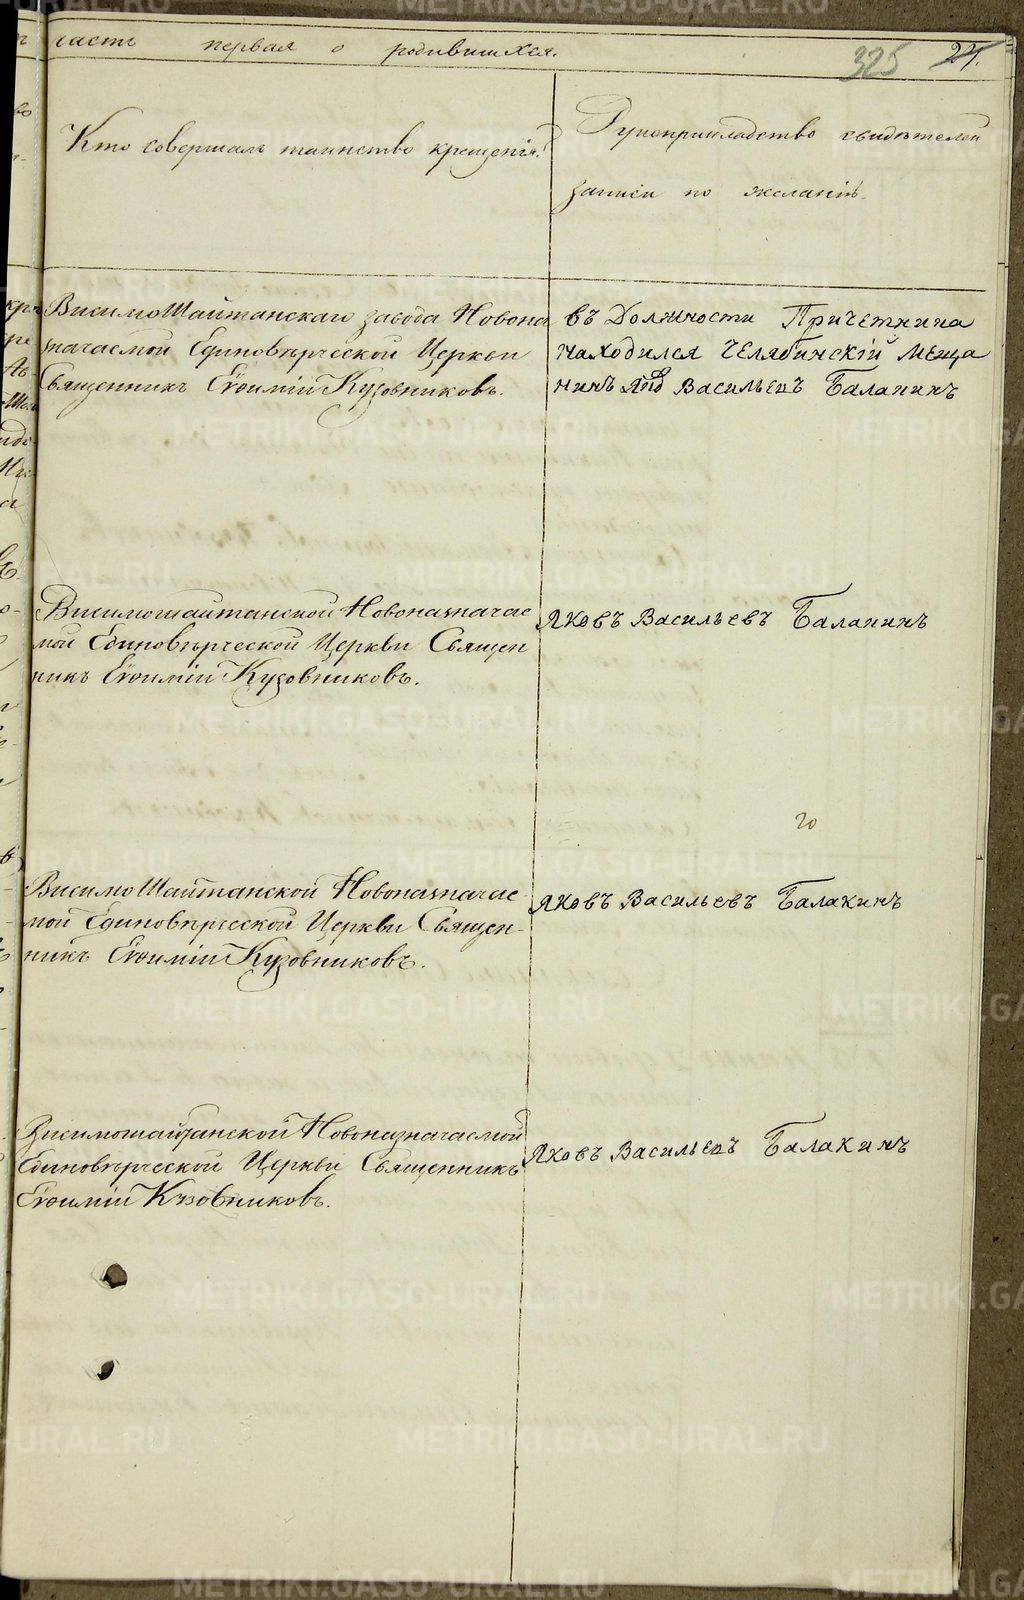 часть первая о родившихся.
325 24.
Кто совершалъ таинство крещенія.
Рукоприкладство свидѣтелей
записи по желанію.
ВисимоШайтанскаго завода Новона
значаемой Единовѣрческой Церкви
Священникъ Евѳимій Кузовниковъ.
въ Должности Причетника
находился Челябинскій мѣща
нинъ Яков Васильевъ Балакинъ
Висимошайтанской Новоназначае
мой Единовѣрческой Церкви Священ
никъ Евѳимій Кузовниковъ.
Яковъ Васильевъ Балакинъ
20
ВисимоШайтанской Новоназначае
мой Единовѣрческой Церкви Священ-
никъ Евѳимій Кузовниковъ.
Яковъ Васильевъ Балакинъ
Висимошайтанской Новоназначаемой
Единовѣрческой Церкви Священникъ
Евѳимій Кузовниковъ.
Яковъ Васильевъ Балакинъ
METRIKI.GASO-URAL.RU